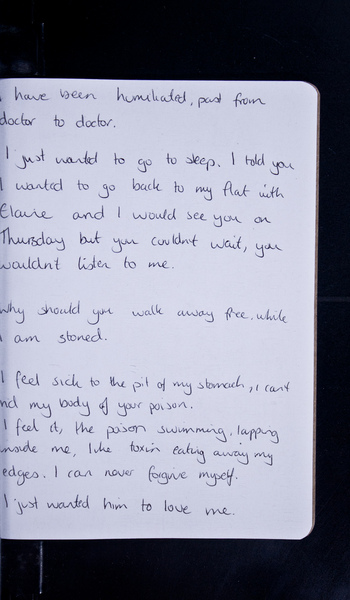 I have been humiliated, past from
doctor to doctor.
I just wanted to go to sleep. I told you
I wanted to go back to my flat with
Elavie and I would see you on
Thursday but you couldn't wait, you
wouldnt listen to me.
Why should you walk away free, while
I am stoned.
I feel sick to the pit of my stomach, I cant
rid my body of your poison.
I feel it, the poison swimming, lapping
inside me, like toxin eating away my
edges. I can never forgive myself.
I just wanted him to love me.